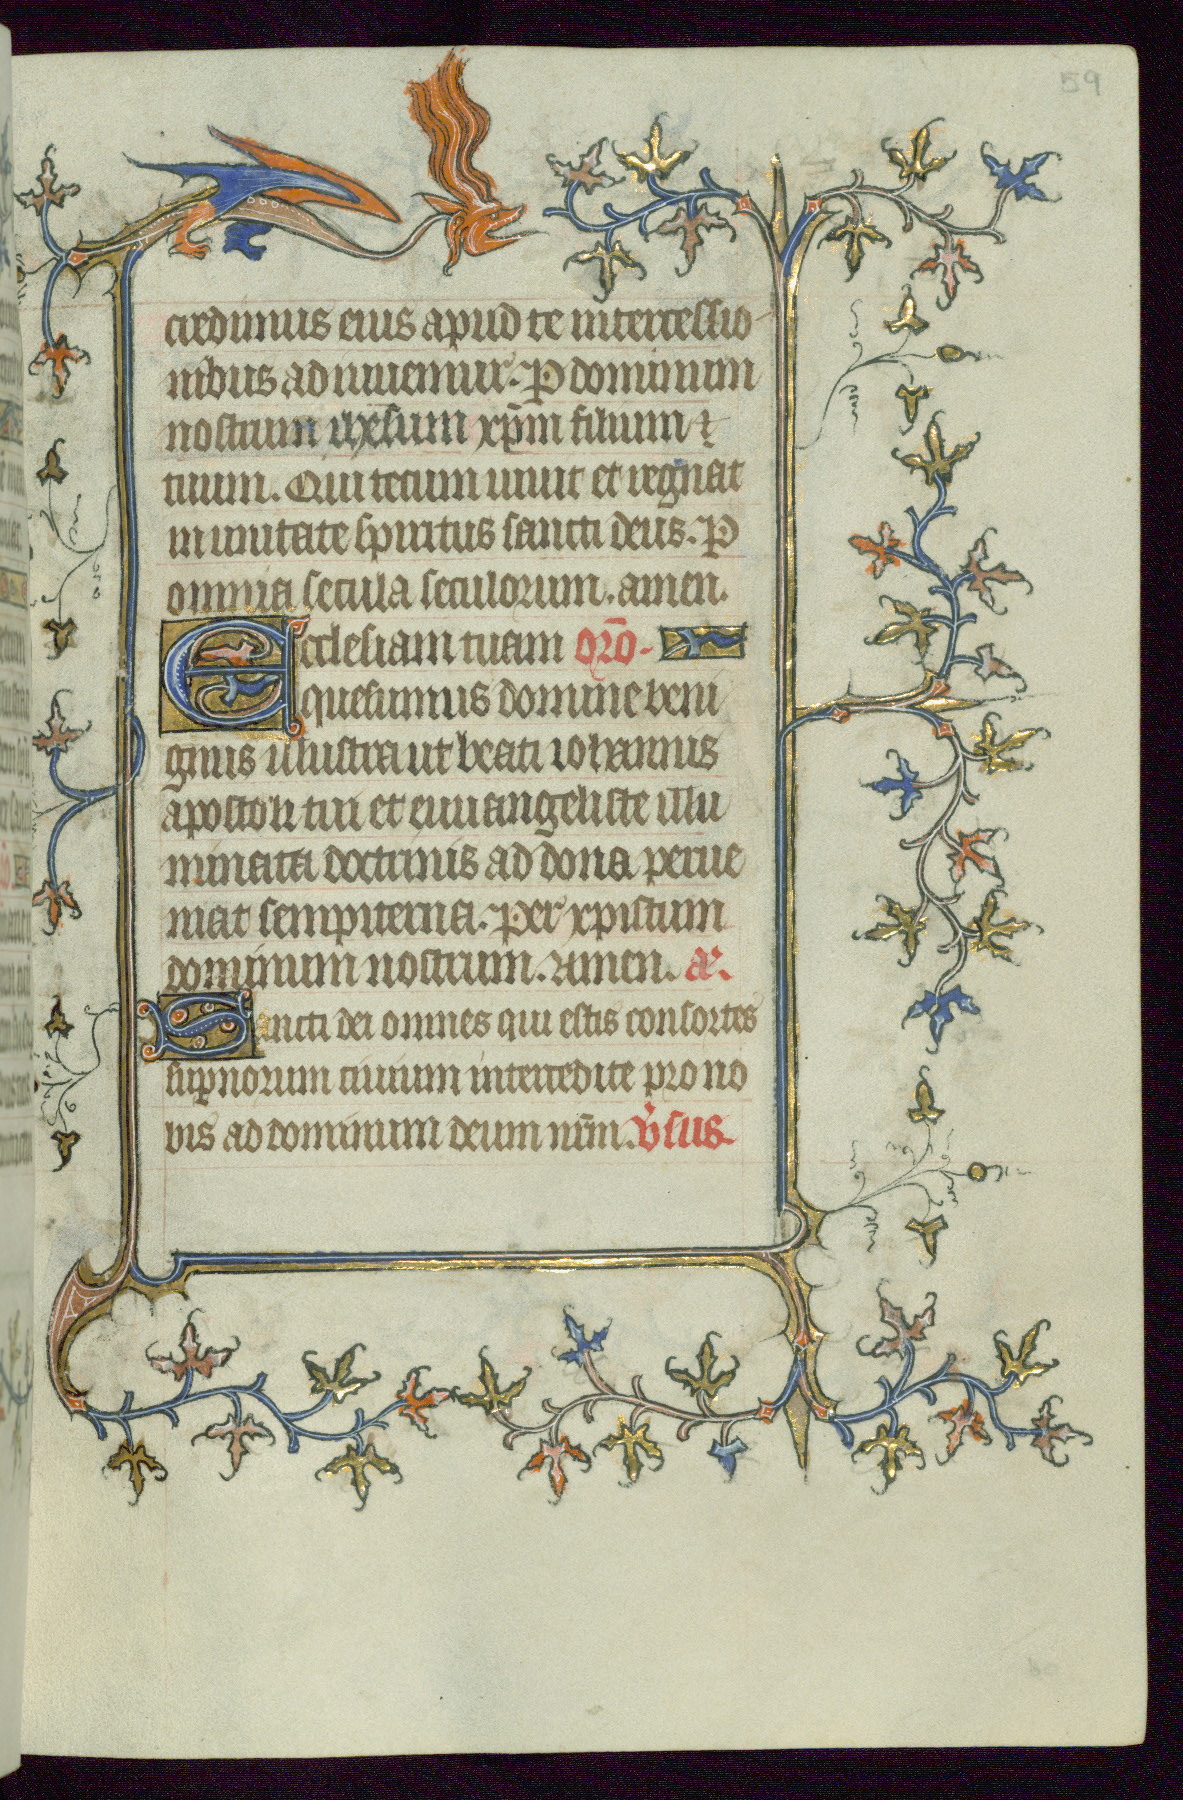 59
credimus eius apud te intercessio
nibus adiuuemur. P dominum
nostrum ihesum xp̄m filium
tuum. Qui tecum uiuit et regnat
in unitate spiritus sancti deus. P
omnia secula seculorum. amen.
Ecclesiam tuam or̄o.
quesumus domine beni
gnus illustra ut beati iohannis
apostoli tui et euuangeliste illu
minata doctrinis ad dona perue
niat sempiterna. Per xpistum
dominum nostrum. Amen. a᷒.
Sancti dei omnes qui estis consortes
suꝑnorum ciuium intercedite pro no
bis ad dominum deum nr̄m. v̄sus.